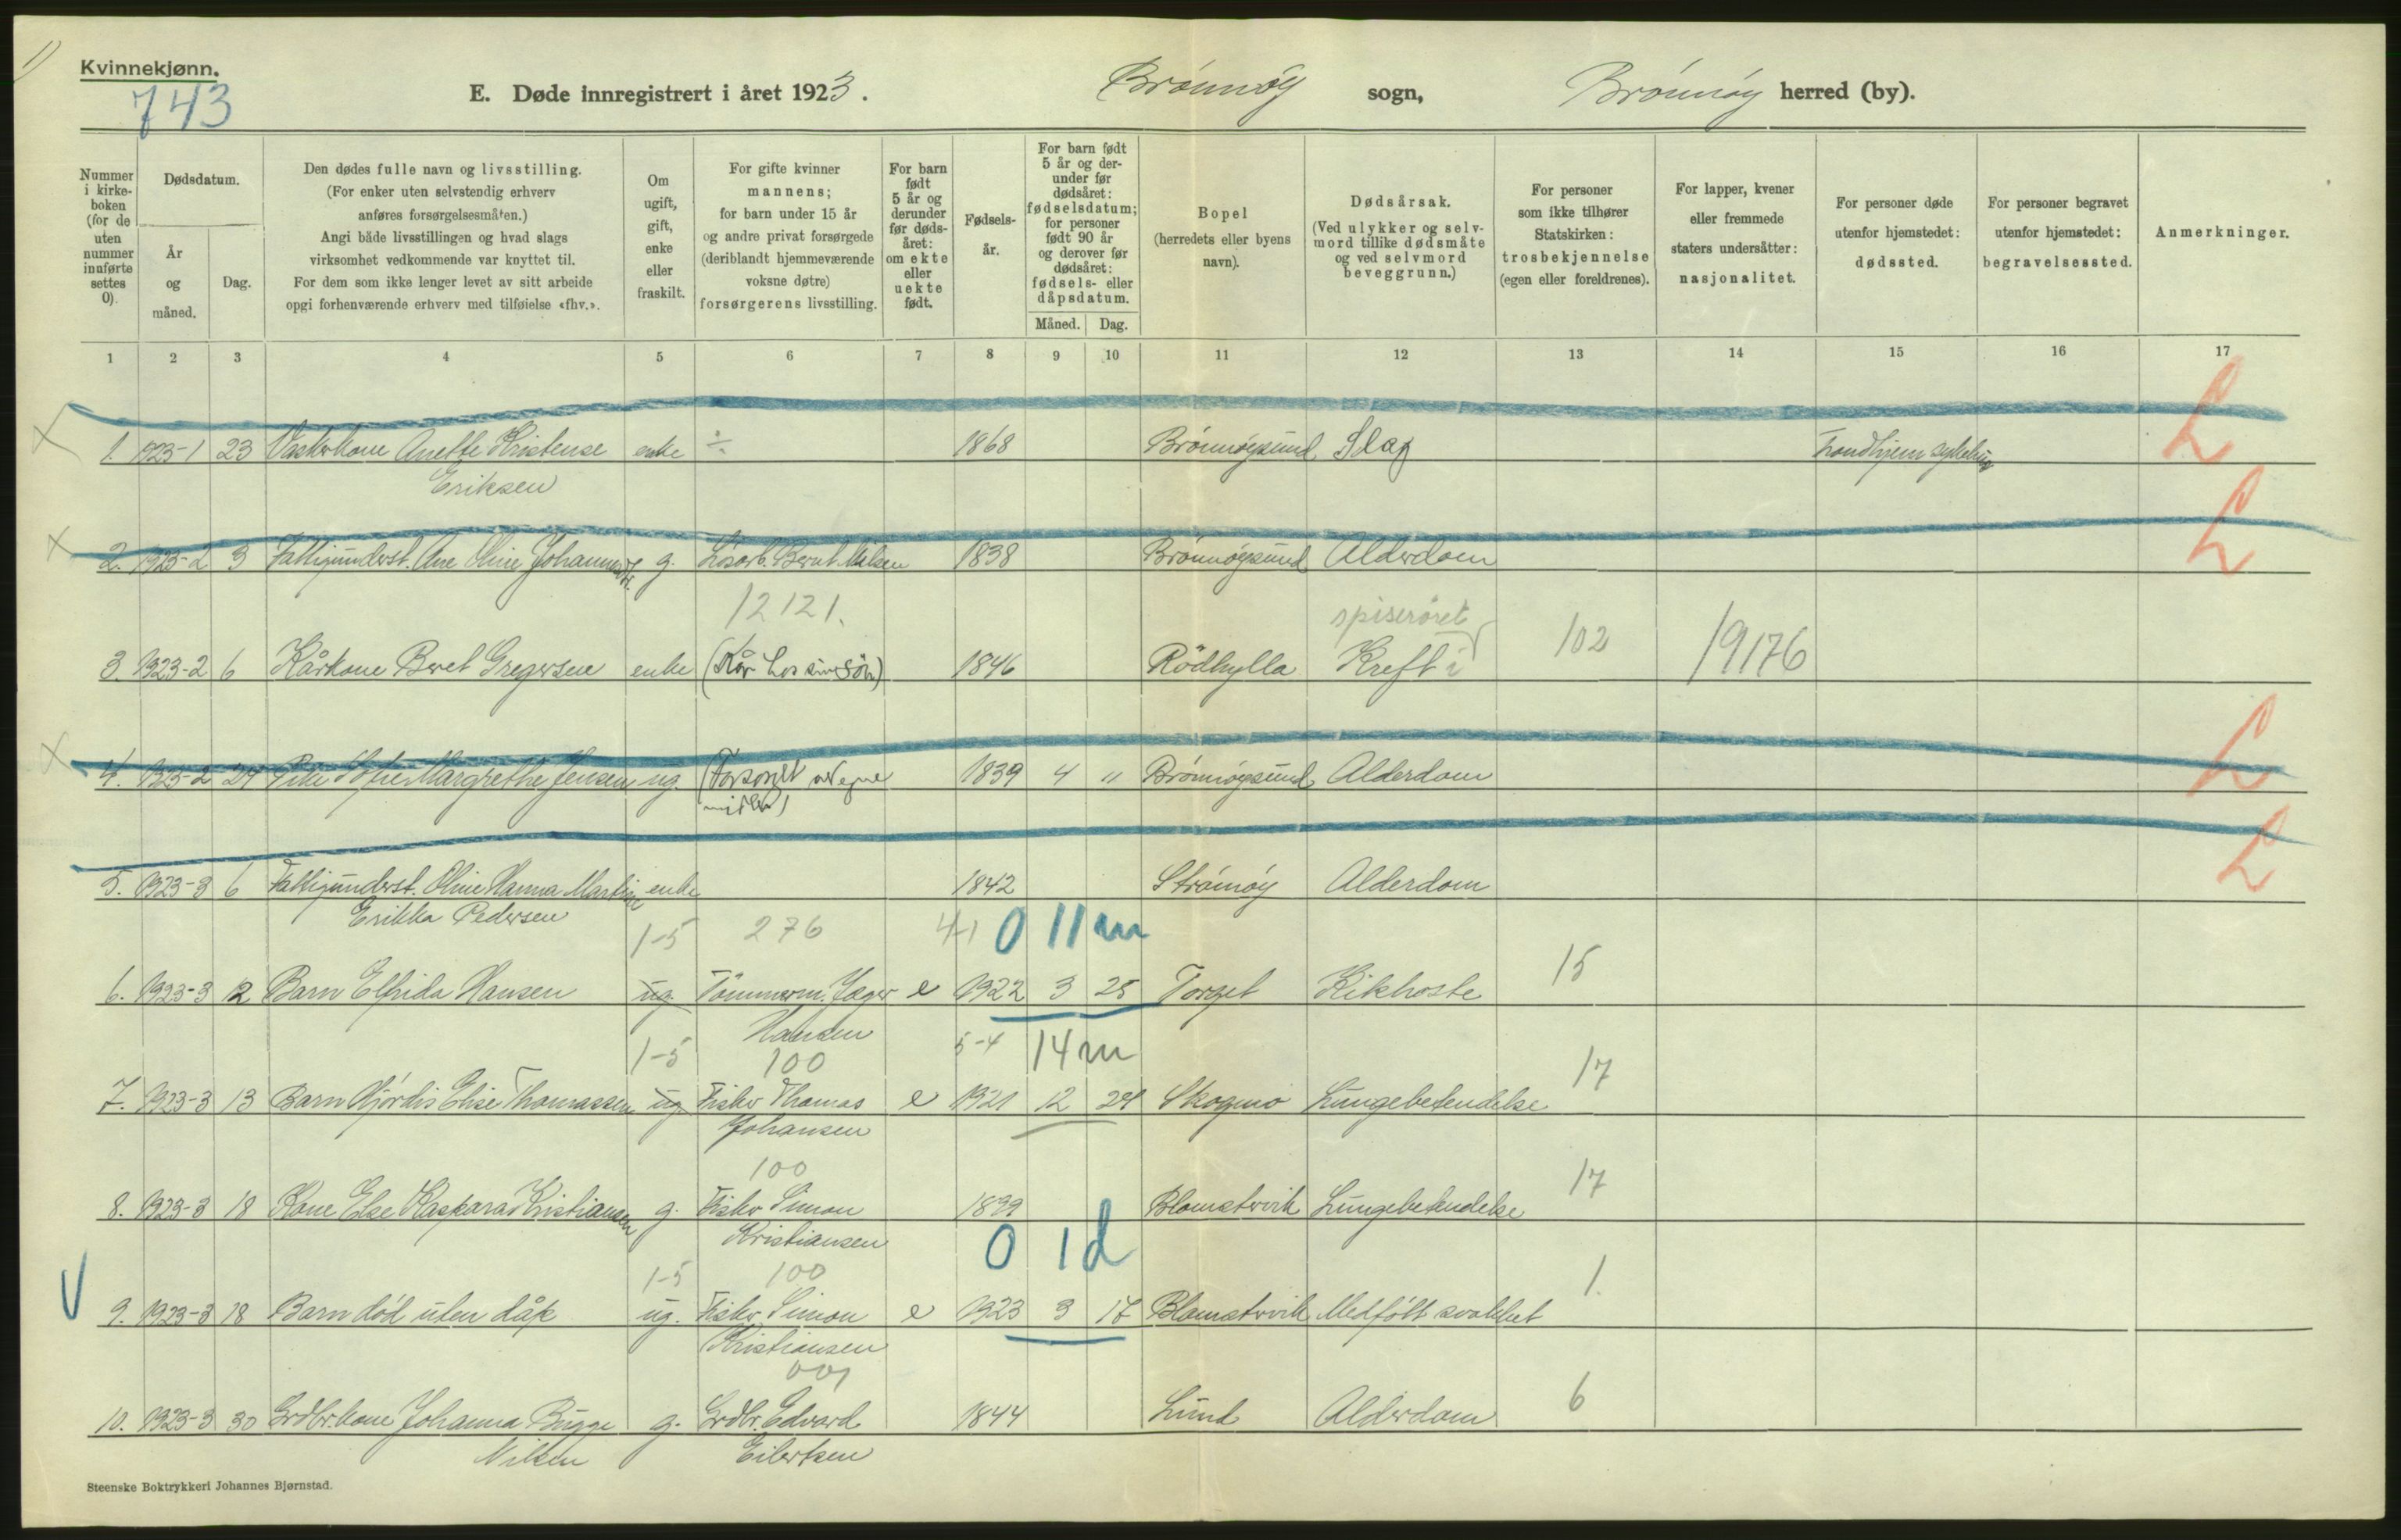 1)
Kvinnekjønn.
743
E. Døde innregistrert i året 1923. Brönnöy sogn, Brönnöy herred (by).
Nummer i kirke-boken (for de uten nummer innførte settes 0).
Dødsdatum.
År og måned.
Dag.
Den dødes fulle navn og livsstilling.
(For enker uten selvstendig erhverv anføres forsørgelsesmåten.)
Angi både livsstillingen og hvad slags virksomhet vedkommende var knyttet til.
For dem som ikke lenger levet av sitt arbeide opgi forhenværende erhverv med tilføielse «fhv.».
Om ugift, gift, enke eller fraskilt.
For gifte kvinner mannens; for barn under 15 år og andre privat forsørgede (deriblandt hjemmeværende voksne døtre) forsørgerens livsstilling.
For barn født 5 år og derunder før døds-året: om ekte eller uekte født.
Fødsels-år.
For barn født 5 år og der-under før dødsåret: fødselsdatum; for personer født 90 år og derover før dødsåret: fødsels- eller dåpsdatum.
Måned. Dag.
Bopel (herredets eller byens navn).
Dødsårsak. (Ved ulykker og selv-mord tillike dødsmåte og ved selvmord beveggrunn.)
For personer som ikke tilhører Statskirken: trosbekjennelse (egen eller foreldrenes).
For lapper, kvener eller fremmede staters undersåtter: nasjonalitet.
For personer døde utenfor hjemstedet: dødssted.
For personer begravet utenfor hjemstedet: begravelsessted.
Anmerkninger.
1 2 3 4 5 6 7 8 9 10 11 12 13 14 15 16 17
1. 1923-1 23 Vaskekone Anette Kristense enke ÷ 1868 Brönnöysund Slag Trondhjem sykehus L
Eriksen
2. 1923-2 3 Fattigunderst. Ane Oline Johannesdtr. g. Lösarb. Bernt Nilsen 1838 Brönnöysund Alderdom L
12121. spiseröret
3. 1923-2 6 Kårkone Beret Gregersen enke (Kår hos sin sön) 1846 Rödhylla Kreft i 102 19176
4. 1923-2 24 Pike Margrethe Jensen ug. (Forsörget av egne 1839 4 11 Brönnöysund Alderdom L
midler)
5. 1923-3 6 Fattigunderst. Oline Hanna Martine enke 1842 Strömöy Alderdom L
Erikka Pedersen
1-5 276 4-1 0 11 m
6. 1923-3 12 Barn Elfrida Hansen ug. Tömmerm. Jæger e 1922 3 25 Torget Kikhoste 15
Hansen
1-5 100 5-4 14 m
7. 1923-3 13 Barn Hjördis Elise Thomassen ug Fisker Thomas e 1921 12 24 Skogmo Lungebetendelse 17
Johansen
100
8. 1923-3 18 Kone Else Kaspara Kristiansen g. Fisker Simon 1899 Blomstervik Lungebetendelse 17
Kristiansen 0 1 d
1-5 100
9. 1923-3 18 Barn död uten dåp ug. Fisker Simon e 1923 3 17 Blomstervik Medfött svakhet 1.
Kristiansen
001
10. 1923-3 30 Grdbr.kone Johanna Bugge g. Grdbr. Edvard 1844 Lund Alderdom 6
Nilsen Eilertsen
Steenske Boktrykkeri Johannes Bjørnstad.